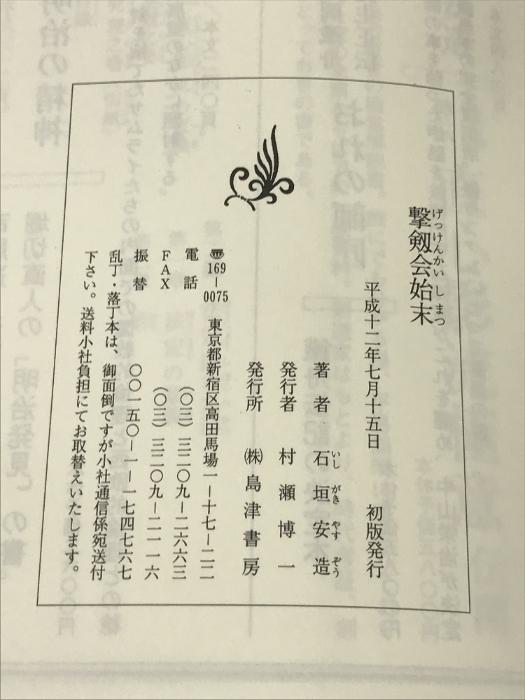 撃剱会始末
げっけんかいしまつ
平成十二年七月十五日 初版発行
著者 石垣安造
いしがきやすぞう
発行者 村瀬博一
発行所 ㈱島津書房
〠169-0075 東京都新宿区高田馬場一-十七-二二
電話 (〇三)三二〇九-二六六三
FAX (〇三)三二〇九-二一一六
振替 〇〇一五〇-一-一七四七六七
乱丁・落丁本は、御面倒ですが小社通信係宛送付
下さい。送料小社負担にてお取替えいたします。